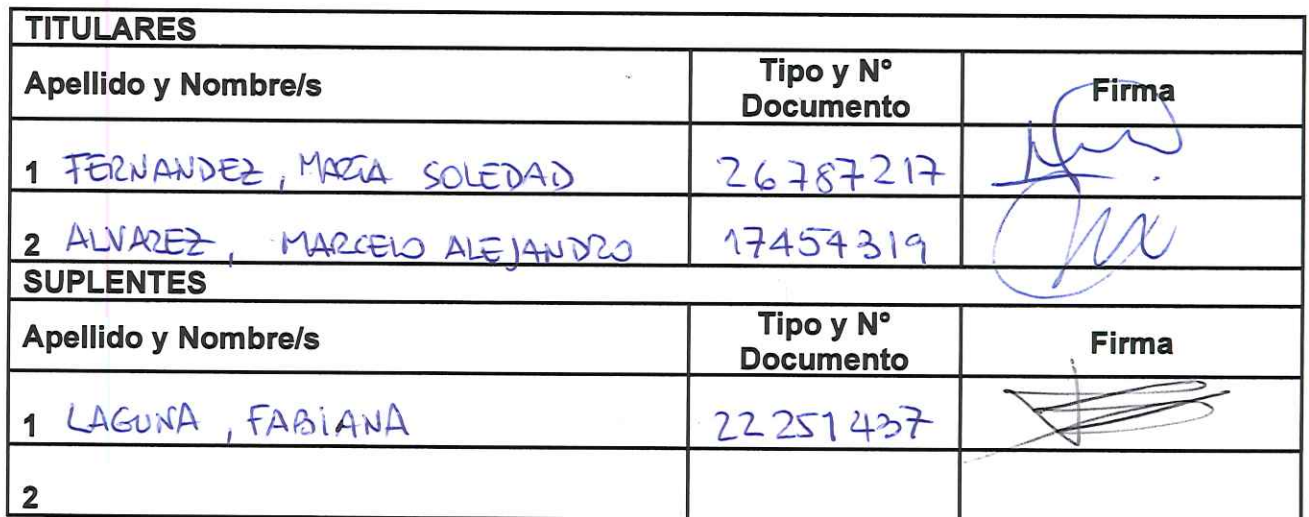 TITULARES
Apellido y Nombre/s Tipo y Nº Documento Firma
1 FERNANDEZ, MARÍA SOLEDAD 26787217
2 ALVAREZ, MARCELO ALEJANDRO 17454319
SUPLENTES
Apellido y Nombre/s Tipo y Nº Documento Firma
1 LAGUNA, FABIANA 22251437
2